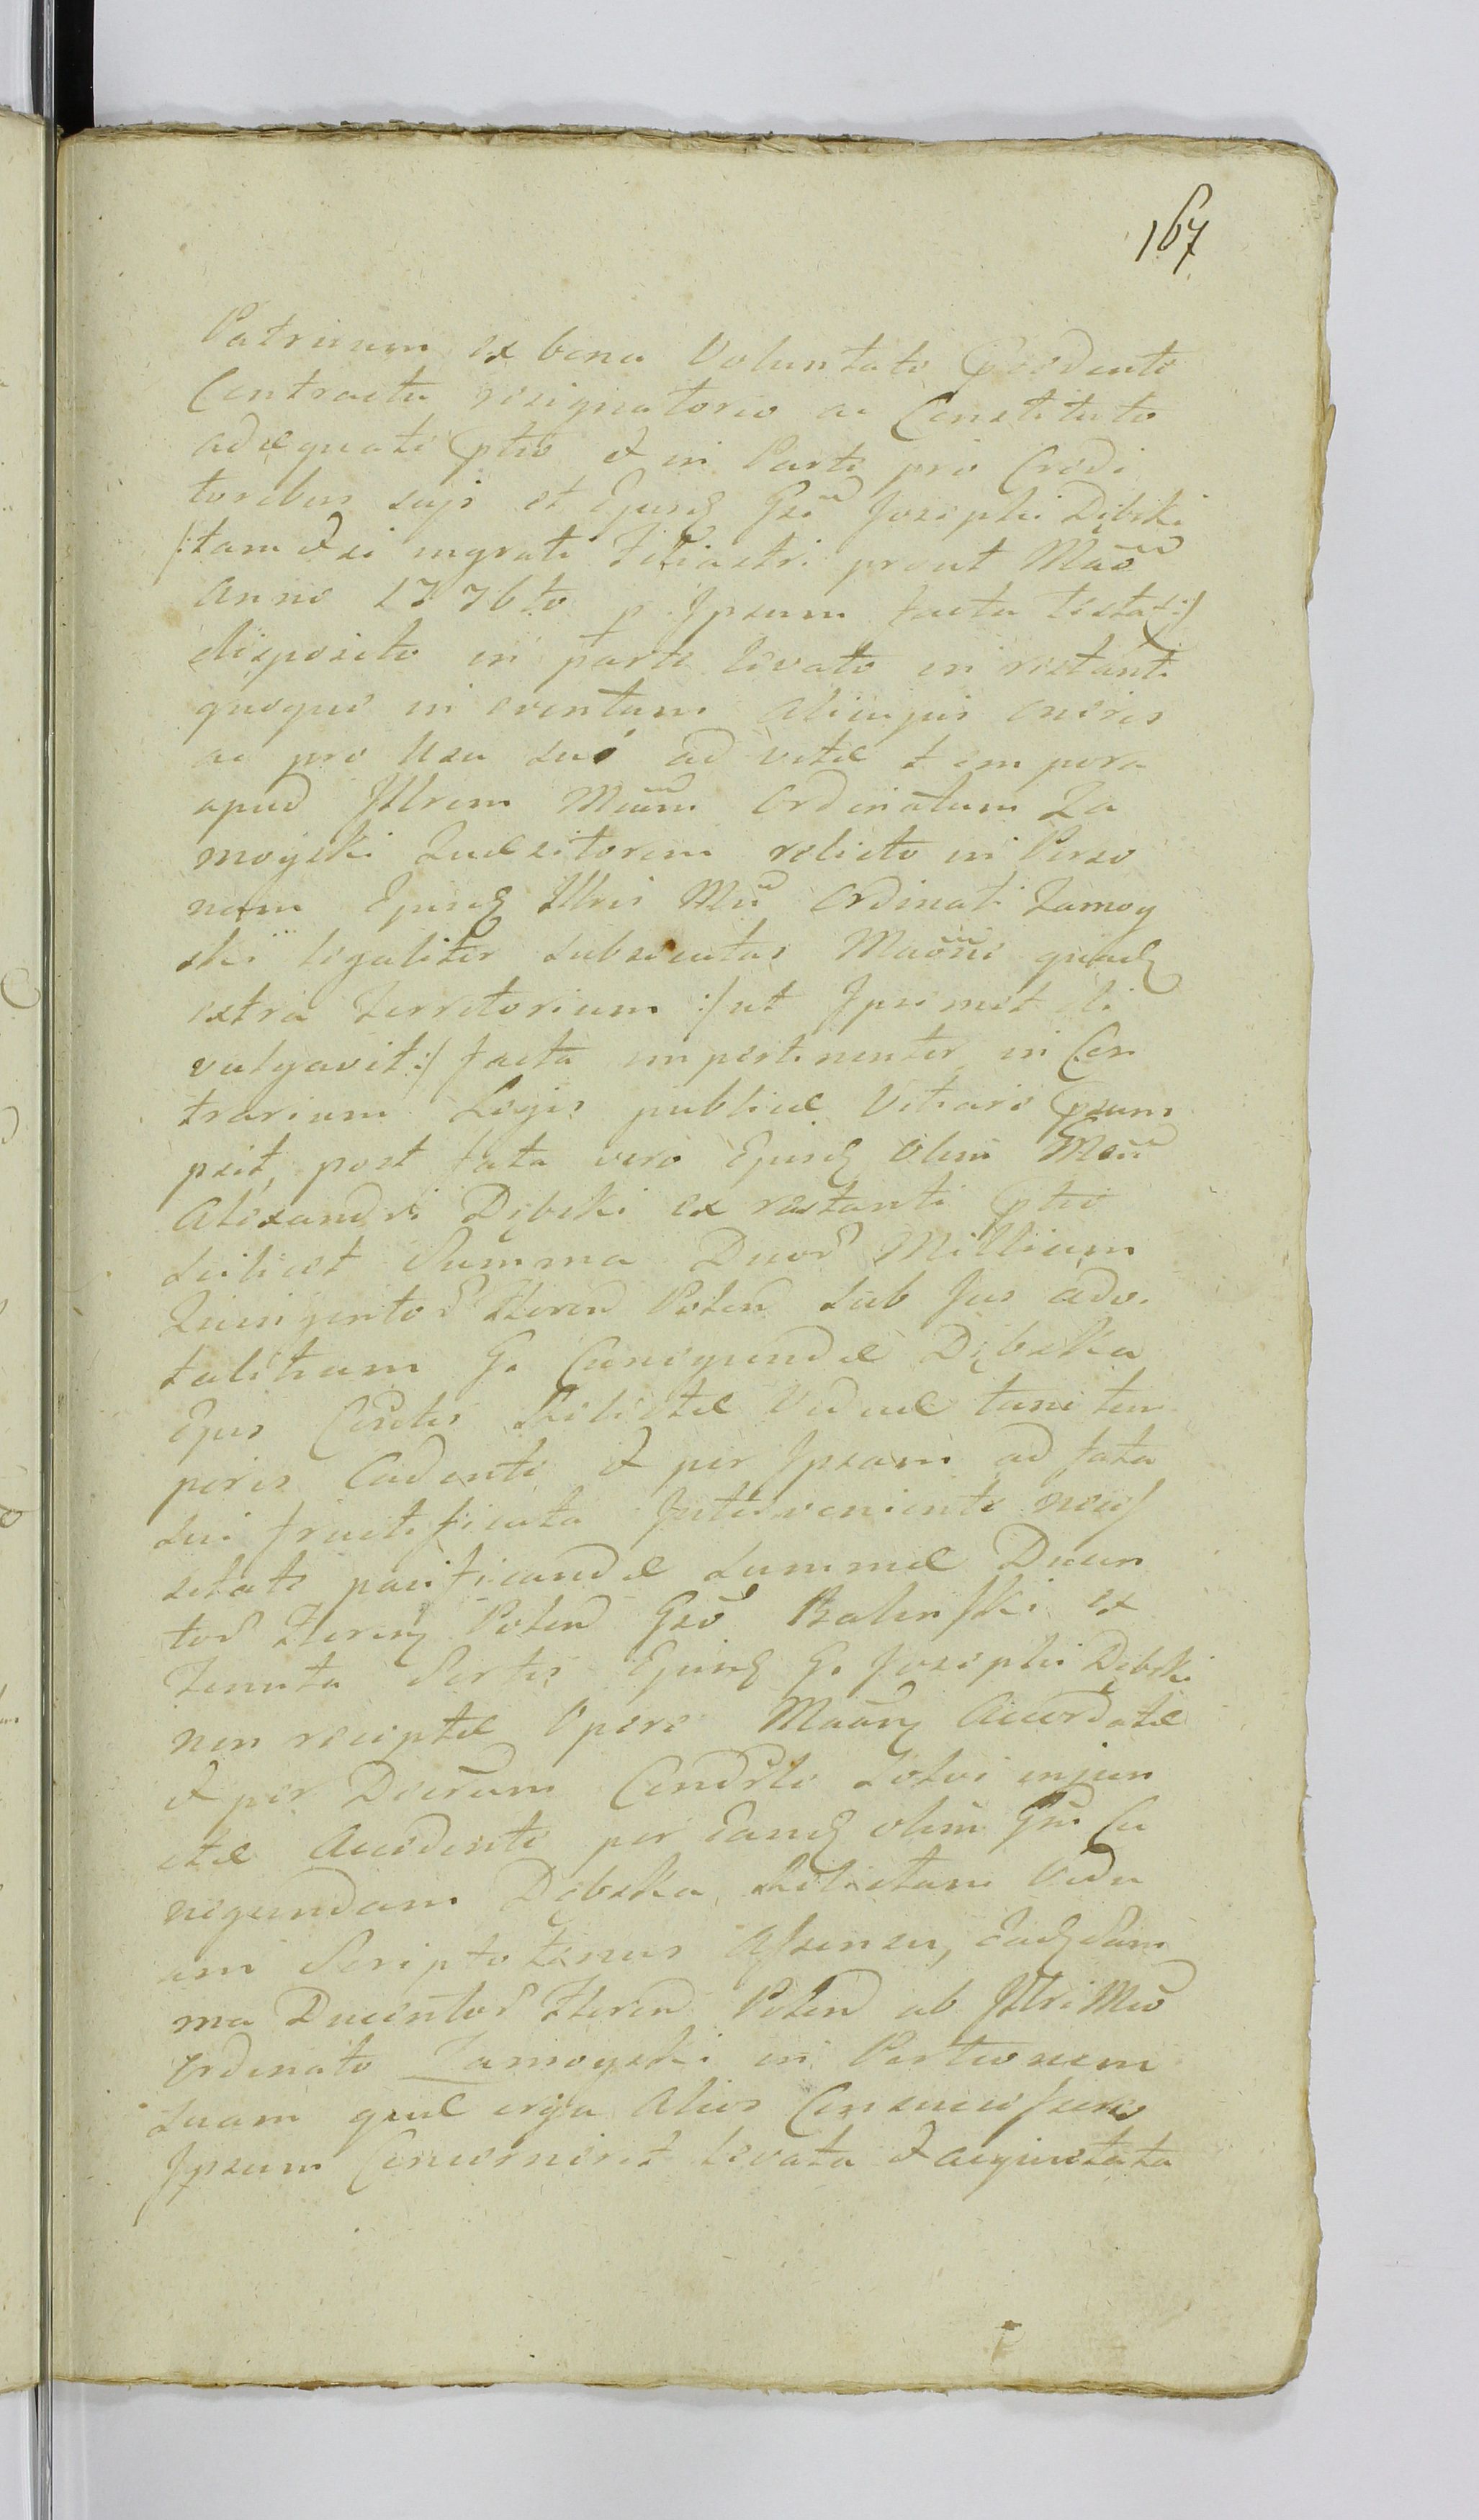 167
Patruum ex bona Voluntate Praecedente
Contractu resignatorio ac Constituto
adaequate ptio et in Parte pro Credi
toribus suis et Ejusd Gsi Josephi Dębski
/:tam Etsi ingrati Filiastri prout Mão
Anno 1776to p Ipsum facta testat:/
disposito in parte levato in restanti
quoque in eventum alicujus oneris
ac pro Usu suo ad vitae tempora
apud Illrem Mcum Ordinatum Za
moyski Quaesitorem relicto in Perso
nam Ejusd Illris Mci Ordinati Zamoy
ski legaliter subsecutas Maõne quad
extra Territorium :/ut Ipsemet di
vulgavit:/ facta impertinenter in Con
trarium Legis publicae Vitiare Praesum
psit, post fata vero Ejusd olim Mci
Alexandri Dębski ex restanti ptio
scilicet Summa Duor Millium
Quingentor Floren Polon sub Jus ado
talitium G. Cunegundae Dębska
Ejus Consortis Relictae Viduae tunc tem
poris Cadenti et per Ipsam ad fata
sui fructificata Interveniente neces
sitate pacificandae summae Ducen
tor Floren Polon Gso Balinski ex
Tenuta Sortis Ejusd G. Josephi Dębski
non receptae Opere Maõn Accordatae
et per Decrum Condrle solvi injun
ctae Accedente per Eand olim Gm Cu
negundam Dębska Relictam Vidu
am Scriptotenus Assensu, Eadem Sum
ma Ducentor Floren Polon ab Illri Mco
Ordinato Zamoyski in Portionem
suam quae erga alios Consuccessores
Ipsum Concernerit levata et acquietata